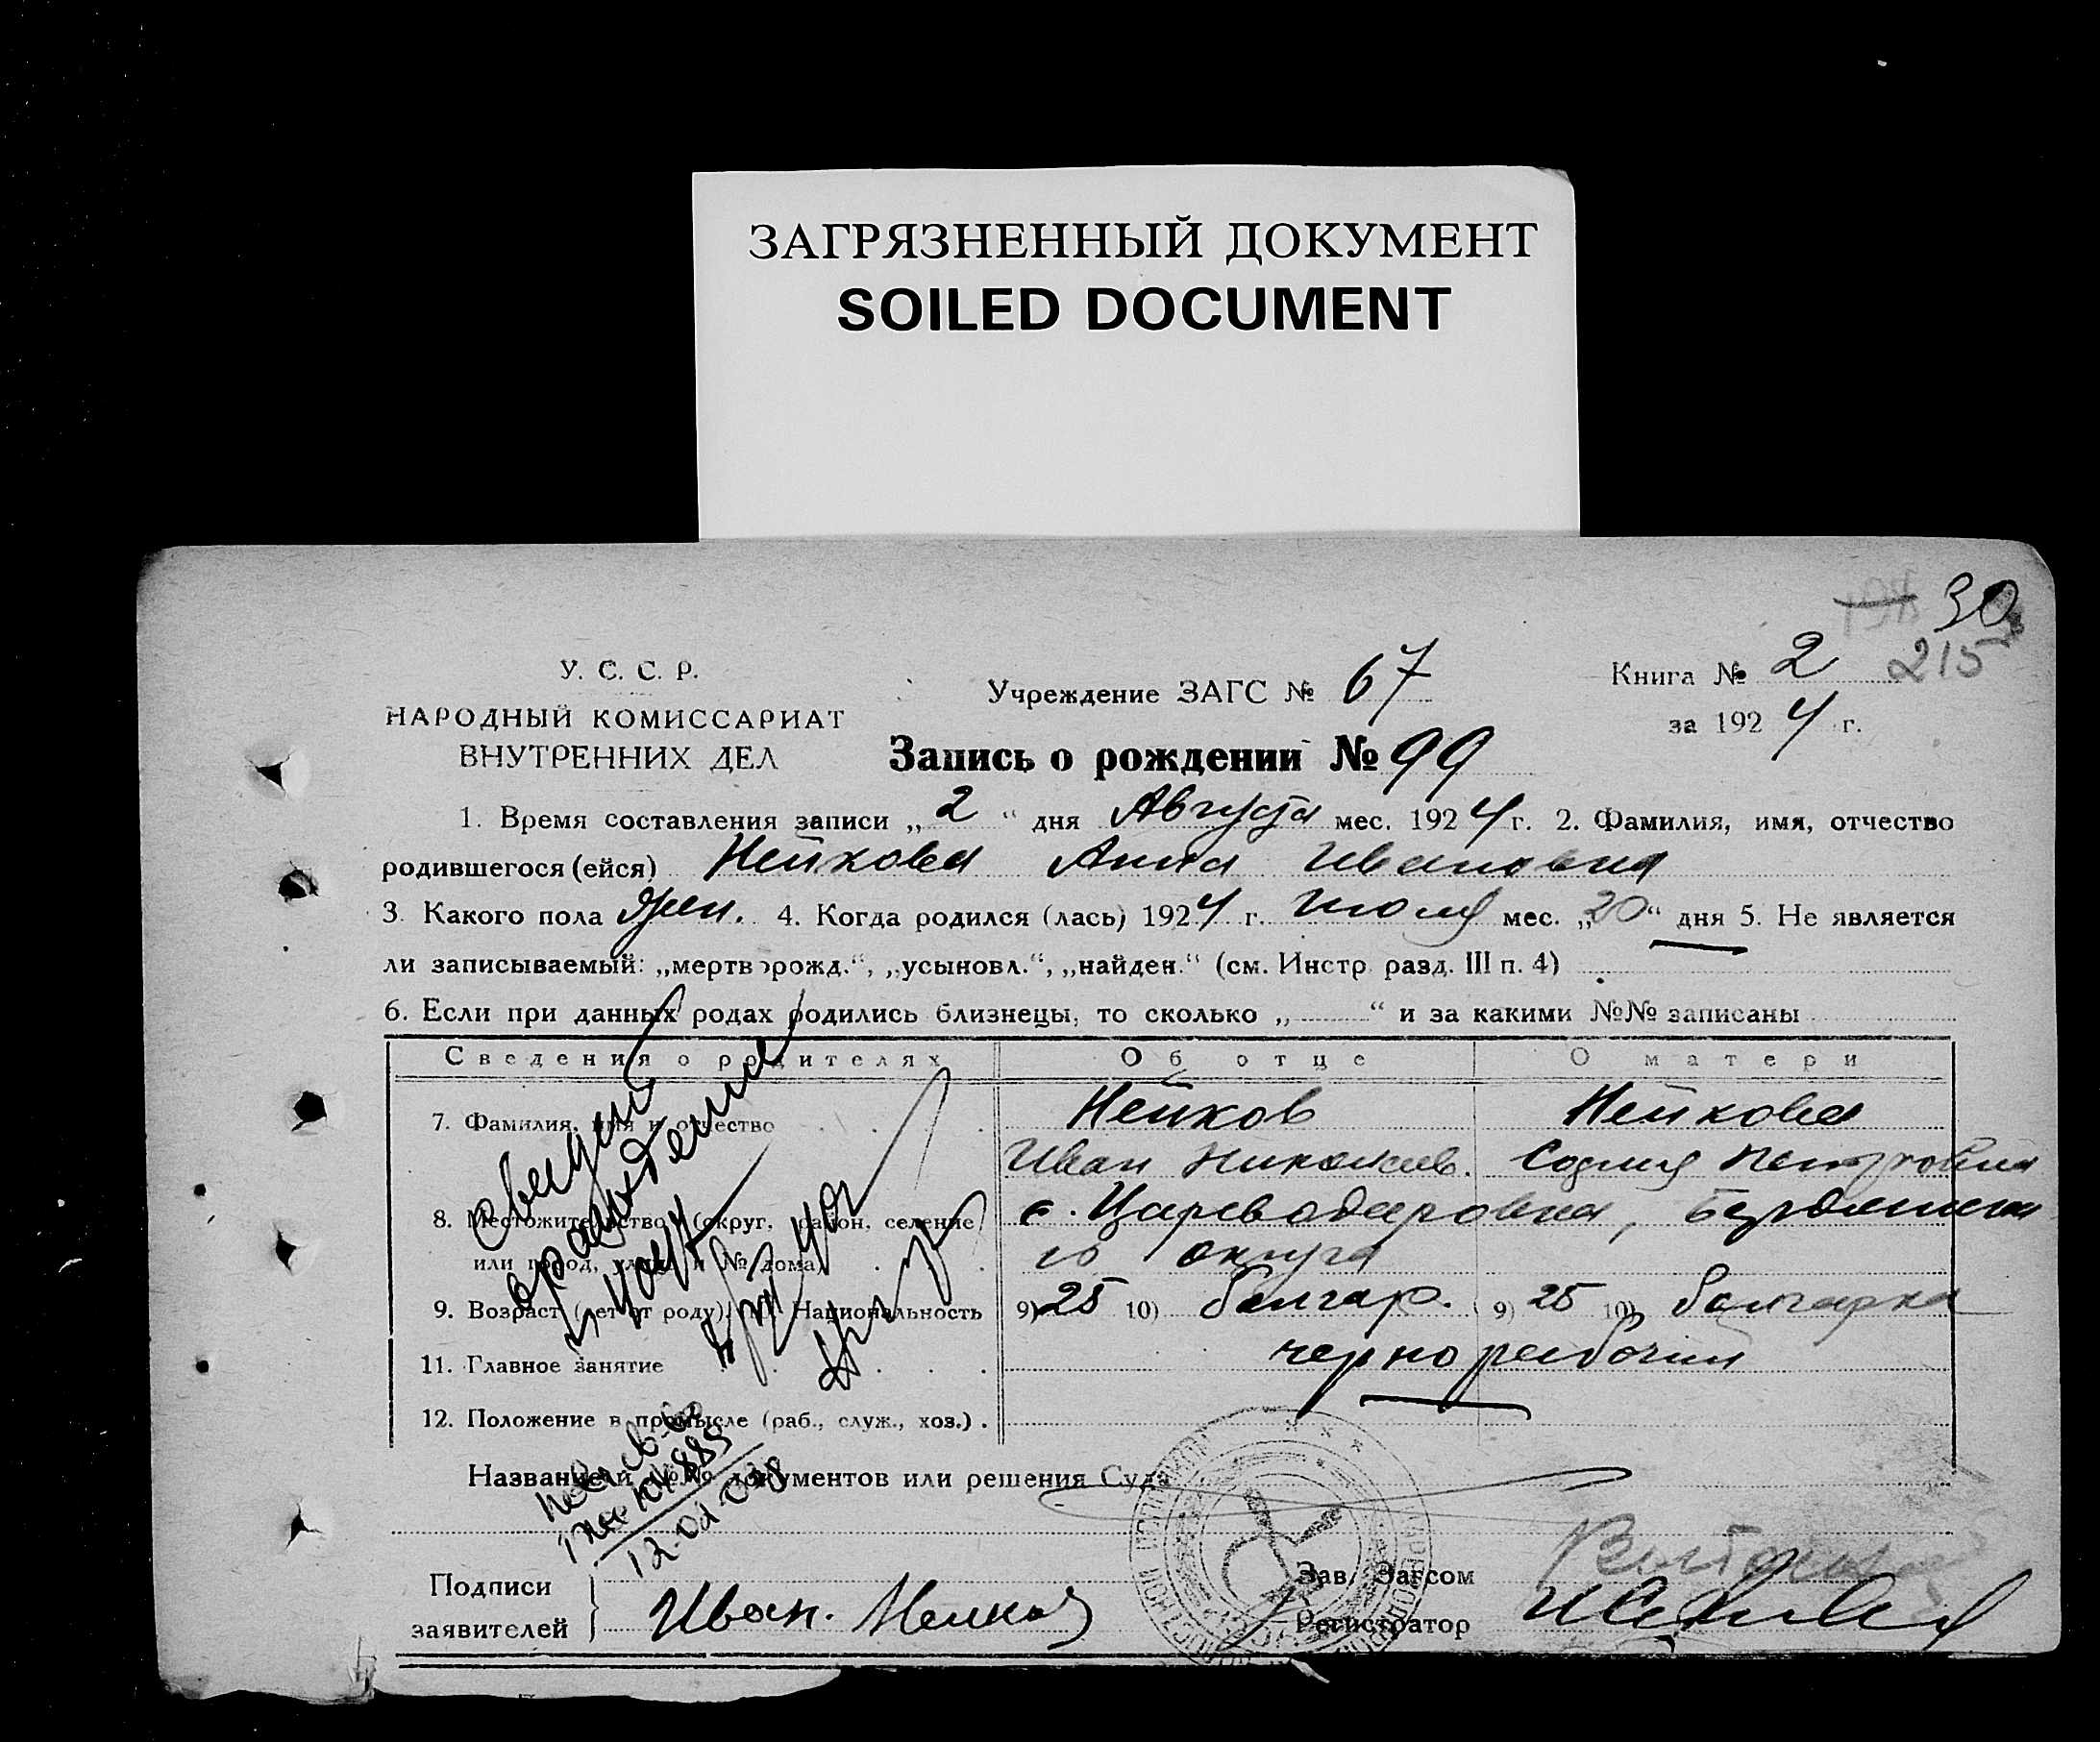 ЗАГРЯЗНЕННЫЙ ДОКУМЕНТ
SOILED DOCUMENT
30
215
У. С. С. Р.
НАРОДНЫЙ КОМИССАРИАТ
ВНУТРЕННИХ ДЕЛ
Учреждение ЗАГС № 67
Книга № 2
за 1924 г.
Запись о рождении № 99
1. Время составления записи „2“ дня Августа мес. 1924 г. 2. Фамилия, имя, отчество
родившегося (ейся) Нейкова Анна Ивановна
3. Какого пола жен. 4. Когда родился (лась) 1924 г. Июля мес. „20“ дня 5. Не является
ли записываемый: „мертворожд.“, „усыновл.“, „найден.“ (см. Инстр. разд. III п. 4)
6. Если при данных родах родились близнецы, то сколько „ “ и за какими №№ записаны
Сведения о родителях Об отце О матери
7. Фамилия, имя и отчество Нейков Нейкова
Иван Николаев. София
8. Местожительство (округ, район, селение, с. Цареводаровка,
или город, улица и № дома) округа
9. Возраст (лет от роду) 10. Национальность 9) 25 10) болгар. 9) 25 10) болгарка
11. Главное занятие чернорабочий
12. Положение в промысле (раб., служ., хоз.)
Название и №№ документов или решения Суда
о рождении
Подписи
заявителей
Иван. Нейков
Зав. Загсом
Регистратор